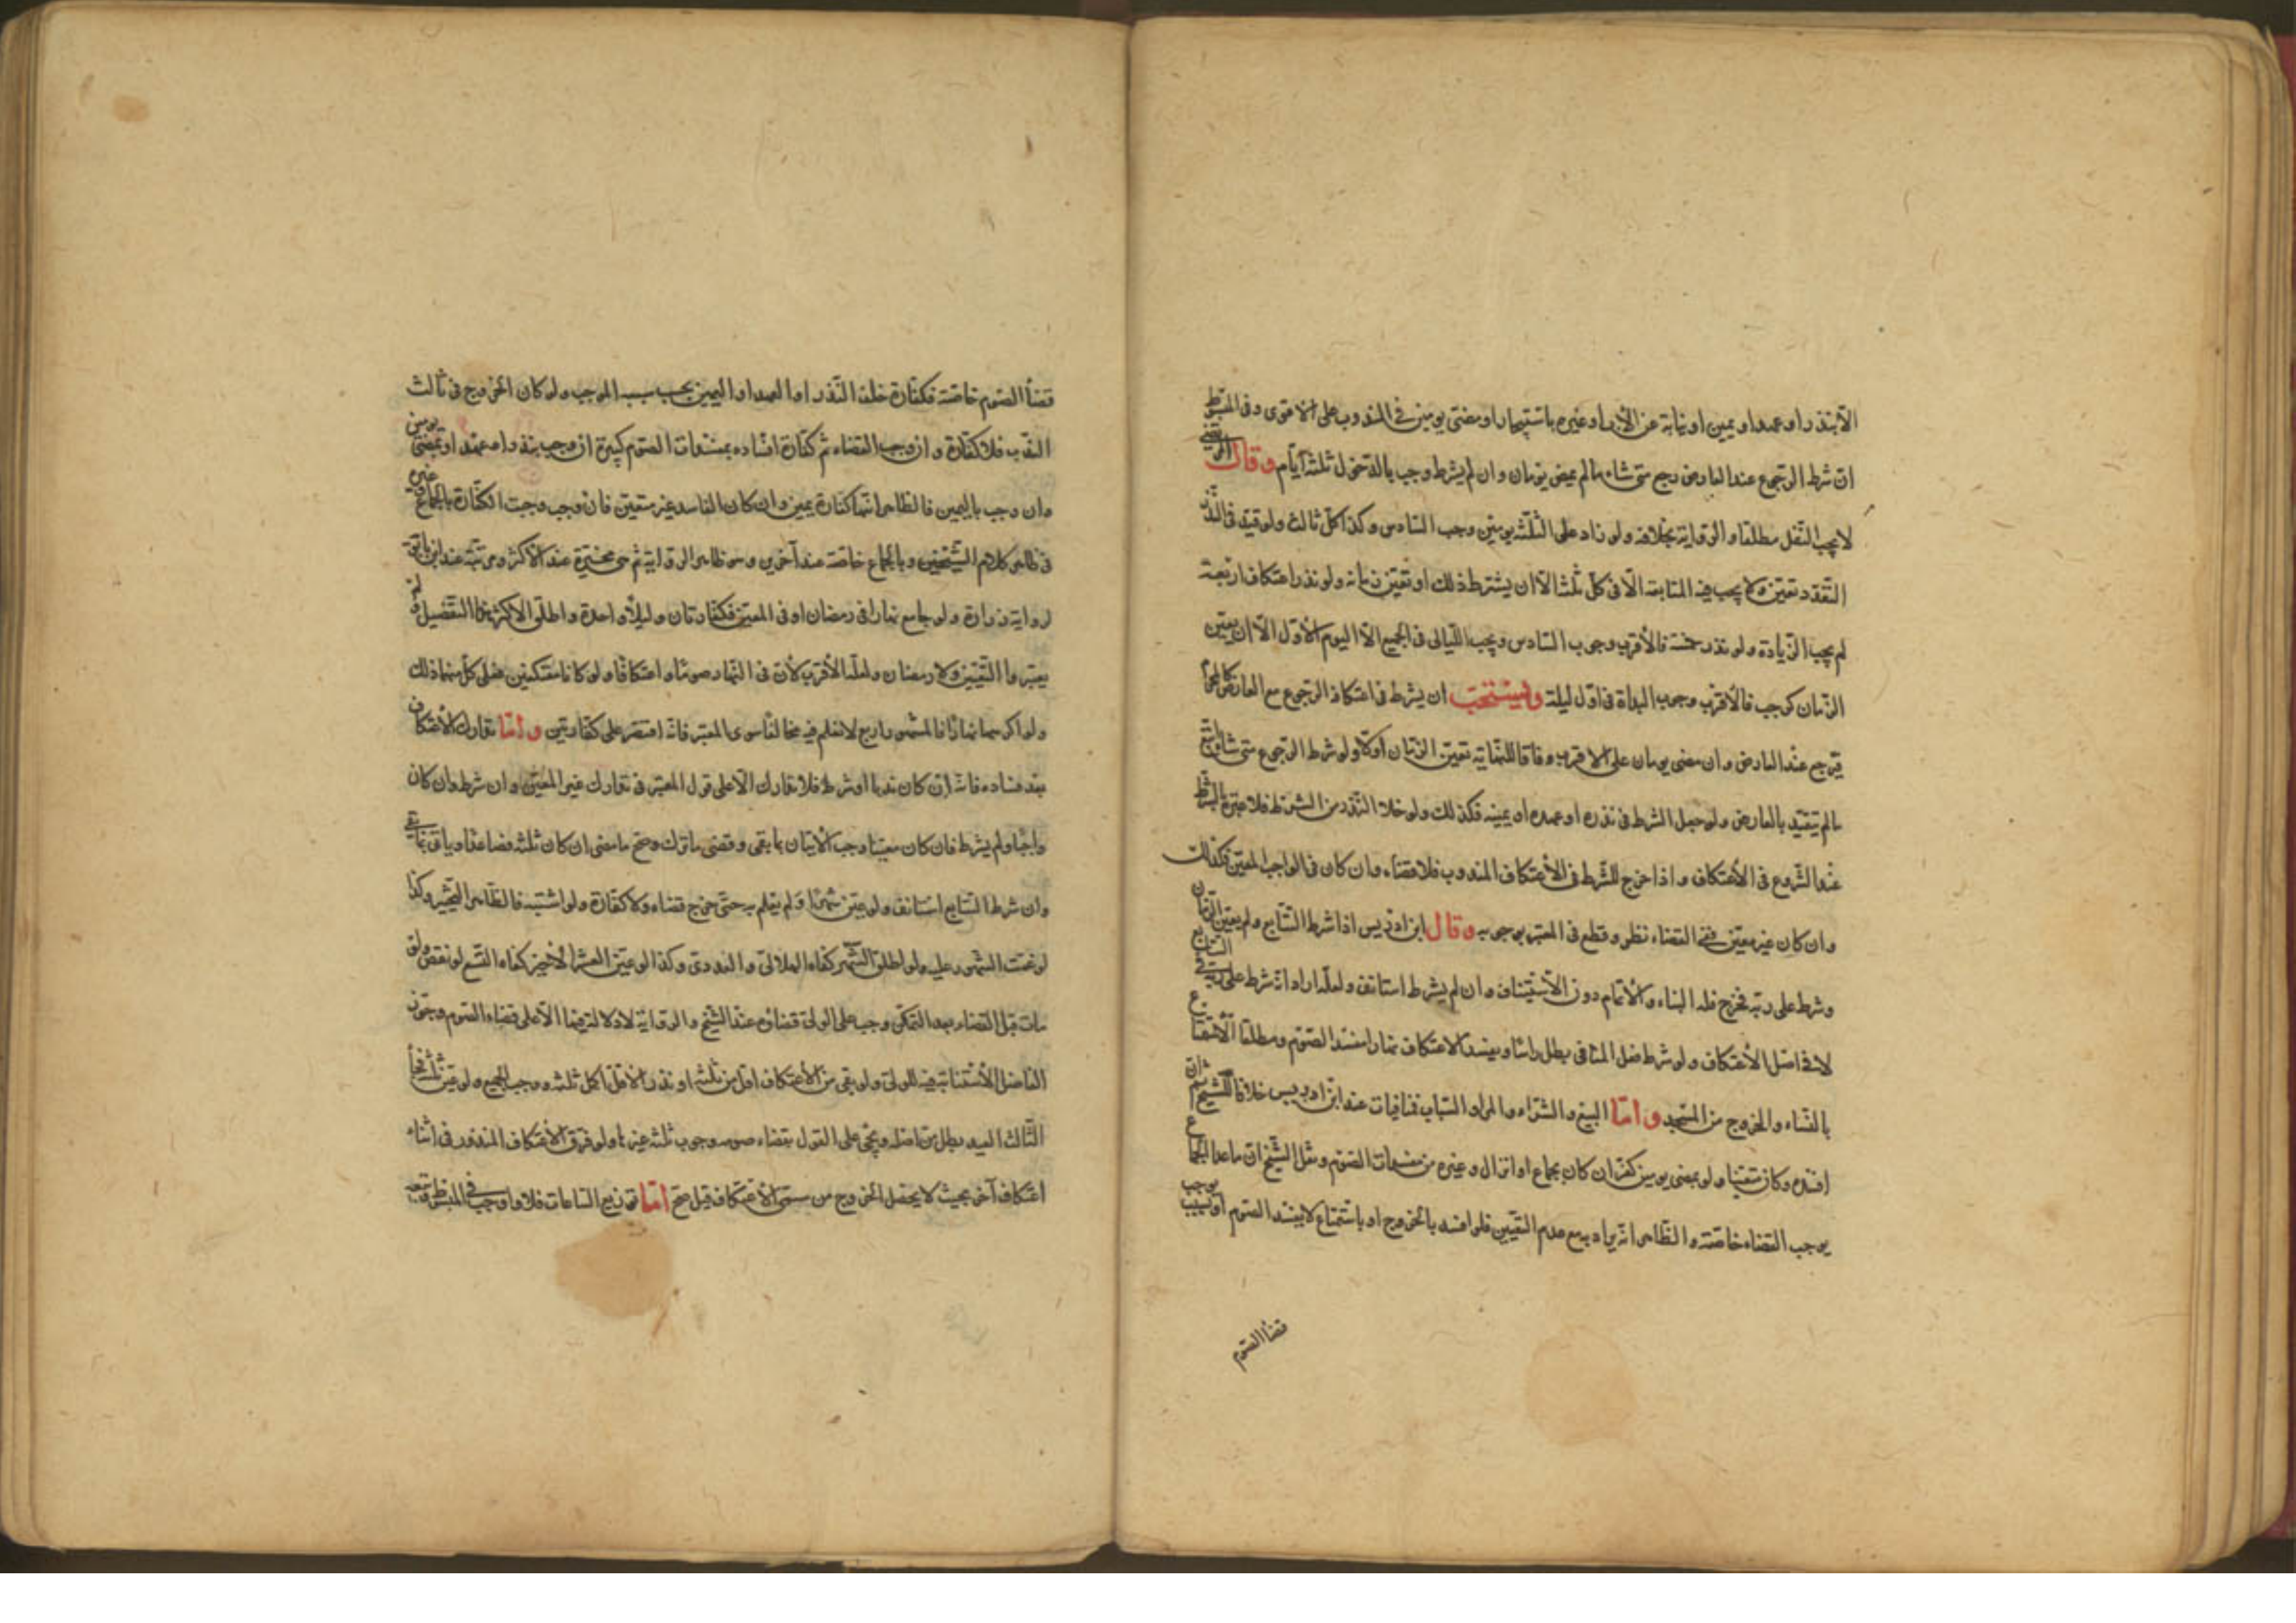 الا بنذر او عهد او يمين او نيابة عن الأب او غيره باستيجار او مضى يومين فى المندوب على الاقوى وفى المبسوط
ان شرط الرجوع عند العارض رجع متى شاء ما لم يمض يومان وان لم يشرط وجب بالدخول ثلثة أيام وقال المرتضى
لا يجب النفل مطلقا والرواية بخلافه ولو زاد على الثلثة يومين وجب السادس وكذا كل ثالث ولو قيد فى النذر
التعدد تعين ولا يجب فيه المتابعة الا فى كل ثلث الا ان يشترط ذلك او تعين زمانه ولو نذر اعتكاف اربعة
لم يجب الزيادة ولو نذر خمسة فالأقرب وجوب السادس ويجب الليالى فى الجميع الا اليوم الأول الا ان يعين
الزمان كرجب فالأقرب وجوب البداة فى اول ليلة ويستحب ان يشرط فى اعتكافه الرجوع مع العارض كالمحرم
فيرجع عند العارض وان مضى يومان على الاقرب وفاقا للنهاية تعين الزمان اولا ولو شرط الرجوع متى شاء اتبع
ما لم يتقيد بالعارض ولو جعل الشرط فى نذره او عهده او يمينه فكذلك ولو خلا النذر من الشرط فلا عبرة بالشرط
عند الشروع فى الأعتكاف واذا خرج للشرط فى الأعتكاف المندوب فلا قضاء وان كان فى الواجب المعين فكذلك
وان كان غير معين ففى القضاء نظر وقطع فى المعتبر بوجوبه وقال ابن ادريس اذا شرط التتابع ولم يعين الزمان
وشرط على ربه فخرج فله البناء والأتمام دون الأستيناف وان لم يشرط استانف ولعله اراد انه شرط على ربه فى التتابع
لا فى اصل الأعتكاف ولو شرط فعل المنافى بطل راسا ويفسد الاعتكاف نهارا مفسد الصوم ومطلقا الأستمتاع
بالنساء والخروج من المسجد واما البيع والشراء والمراء والسباب فنافيات عند ابن ادريس خلافا للشيخ ثم ان
افسده وكان متعينا ولو بمضى يومين كفر ان كان بجماع او انزال وغيره من مفسدات الصوم ونقل الشيخ ان ما عدا الجماع
يوجب القضاء خاصة والظاهر انه يراد به مع عدم التعيين فلو افسد بالخروج او باستمتاع لا يفسد الصوم او بسبب يوجب
قضا الصوم
قضأ الصوم خاصة فكفارة خلف النذر او العهد او اليمين بحسب سبب الموجب ولو كان الخروج فى ثالث
الندب فلا كفارة وان وجب القضاء ثم كفارة افساده بمفسدات الصوم كبيرة ان وجب بنذر او عهد او بمضى يومين
وان وجب باليمين فالظاهر انها كفارة يمين وان كان الفاسد غير متعين فان وجب وجبت الكفارة بالجماع وغيره
فى ظاهر كلام الشيخين وبالجماع خاصة عند آخرين وهو ظاهر الرواية ثم هى مخيرة عند الأكثر ومرتبة عند ابن بابويه
لرواية زرارة ولو جامع نهارا فى رمضان او فى المعين فكفارتان وليلا واحدة واطلق الاكثر هذا التفصيل لم
يعتبروا التعيين ولا رمضان ولعله الأقرب لأن فى النهار صوما واعتكافا ولو كانا معتكفين فعلى كل منهما ذلك
ولو اكرهها نهارا فالمشهور اربع لا نعلم فيه مخالفا سوى المعتبر فانه اقتصر على كفارتين واما تدارك الأعتكاف
بعد فساده فانه ان كان ندبا او شرط فلا تدارك الا على قول المعتبر فى تدارك غير المعين وان شرط وان كان
واجبا ولم يشرط فان كان معينا وجب الأتيان بما بقى وقضى ما ترك وصح ما مضى ان كان ثلثة فصاعدا وياتى بما بقى
وان شرط التتابع استانف ولو عين شهرا ولم يعلم به حتى خرج قضاء ولا كفارة ولو اشتبه فالظاهر التخيير وكذا
لو غمت الشهور عليه ولو اطلق الشهر كفاه الهلالى والعددى وكذا لو عين العشر الأخير كفاه التسع لو نقص ولو
مات قبل القضاء بعد التمكن وجب على الولى قضاؤه عند الشيخ والرواية لا دلالة فيها الا على قضاء الصوم وجوز
الفاضل الأستنابة فيه للولى ولو بقى من الأعتكاف اقل من ثلثة او نذر الأقل اكمل ثلثه ووجب الجميع ولو عين ثلثة فجأ
الثالث العيد بطل من اصله ويجى على القول بقضاء صومه وجوب ثلثه غيرها ولو فرق الأعتكاف المنذور فى اثناء
اعتكاف آخر بحيث لا يحصل الخروج من مسمى الأعتكاف قيل صح اما توزيع الساعات فلا واوجب فى المبسوط